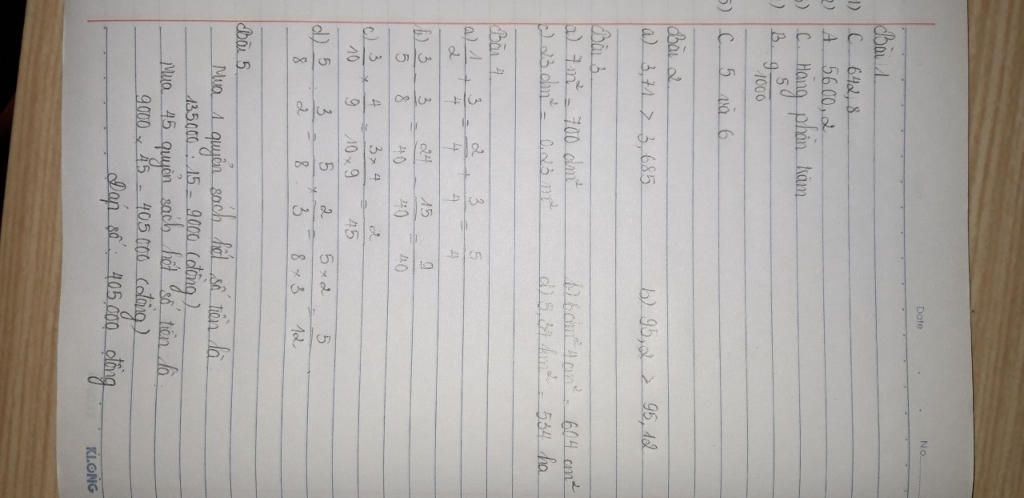 Date
No.
Bài 1
1) C. 642,8
2) A. 5600,2
3) C. Hàng phần trăm
4) B. 9 5/1000
5) C. 5 và 6
Bài 2
a) 3,71 > 3,685 b) 95,2 > 95,12
Bài 3
a) 7m² = 700 dm² b) 6dm² 4cm² = 604 cm²
c) 23dm² = 0,23m² d) 5,34 km² = 534 ha
Bài 4
a) 1/2 + 3/4 = 2/4 + 3/4 = 5/4
b) 3/5 - 3/8 = 24/40 - 15/40 = 9/40
c) 3/10 × 4/9 = 3×4/10×9 = 2/45
d) 5/8 : 3/2 = 5/8 × 2/3 = 5×2/8×3 = 5/12
Bài 5
Mua 1 quyển sách hết số tiền là
135000 : 15 = 9000 (đồng)
Mua 45 quyển sách hết số tiền là
9000 × 45 = 405000 (đồng)
Đáp số: 405,000 đồng
KLONG